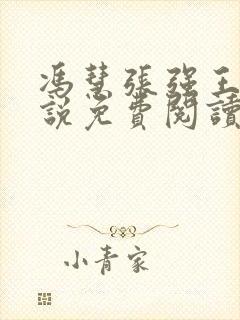 馮慧張强王
說免費閱讀
小青家